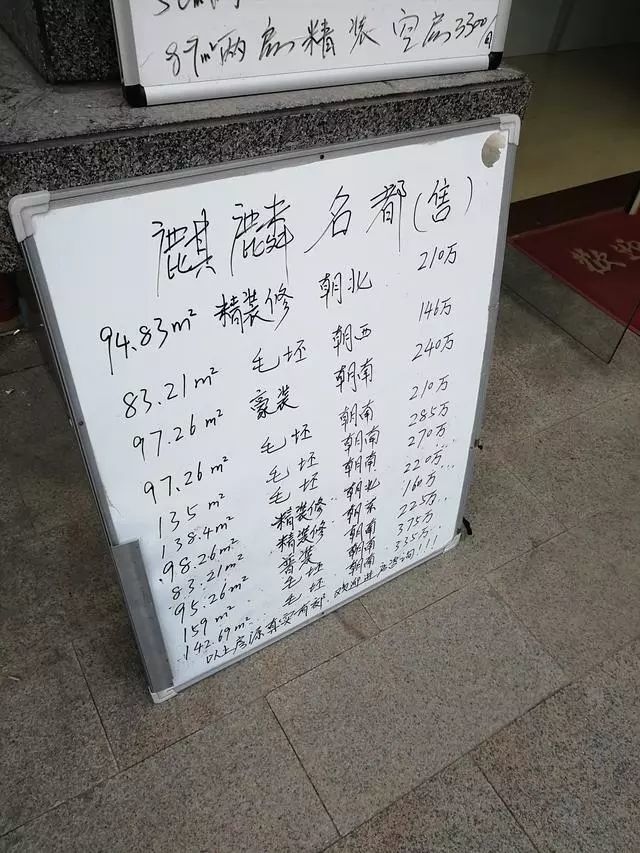 87m²两房精装空房3300/月
麒麟名都(售)
94.83m² 精装修 朝北 210万
83.21m² 毛坯 朝西 146万
97.26m² 豪装 朝南 240万
97.26m² 毛坯 朝南 210万
135m² 毛坯 朝南 285万
138.4m² 毛坯 朝南 270万
98.26m² 精装修 朝北 220万
83.21m² 精装修 朝东 160万
95.26m² 普装 朝南 225万
159m² 毛坯 朝南 375万
142.69m² 毛坯 朝南 335万
以上房源真实有效,欢迎进店咨询!!!